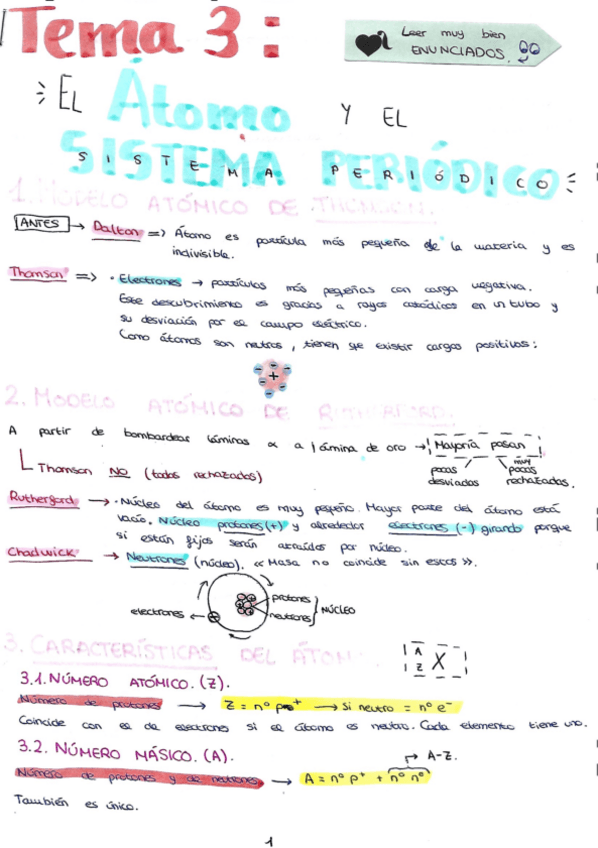 Tema 3:
Leer muy bien
ENUNCIADOS.
EL Átomo Y EL
SISTEMA PERIÓDICO
1. MODELO ATÓMICO DE THOMSON.
ANTES → Dalton => Átomo es partícula más pequeña de la materia y es
indivisible.
Thomson => · Electrones → partículas más pequeñas con carga negativa.
Este descubrimiento es gracias a rayos catódicos en un tubo y
su desviación por el campo eléctrico.
Como átomos son neutros, tienen qe existir cargas positivas:
2. MODELO ATÓMICO DE RUTHERFORD.
A partir de bombardear láminas α a lámina de oro → Mayoría pasan
pocas desviadas
muy pocas rechazadas.
Thomson NO (todos rechazados)
Rutherford → · Núcleo del átomo es muy pequeño. Mayor parte del átomo está
vacío. Núcleo protones (+) y alrededor electrones (-) girando porque
si están fijos serán atraídos por núcleo.
Chadwick → Neutrones (núcleo). << Masa no coincide sin estos >>.
electrones ←
protones
neutrones
NÚCLEO
3. CARACTERÍSTICAS DEL ÁTOMO.
A
Z X
3.1. NÚMERO ATÓMICO. (Z).
Número de protones → Z = nº p+ → Si neutro = nº e-
Coincide con el de electrones si el átomo es neutro. Cada elemento tiene uno.
3.2. NÚMERO MÁSICO. (A).
→ A-Z.
Número de protones y de neutrones → A = nº p+ + nº nº
También es único.
1